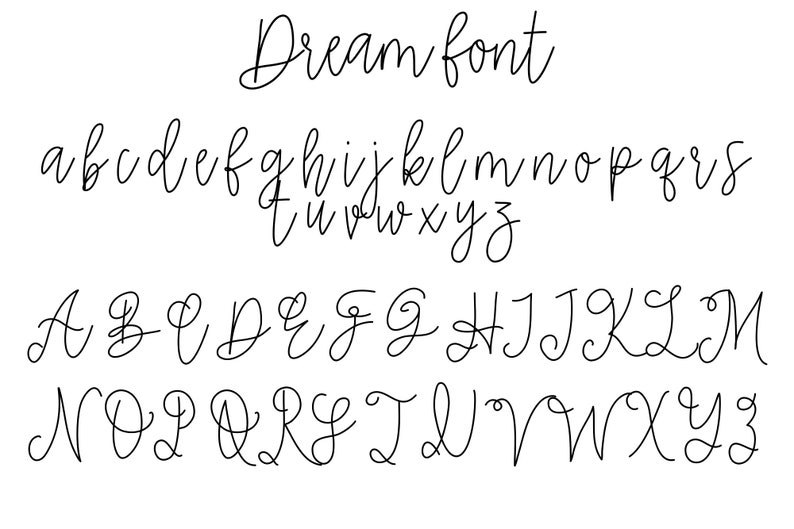 Dream font
a b c d e f g h i j k l m n o p q r s
t u v w x y z
A B C D E F G H I J K L M
N O P Q R S T U V W X Y Z